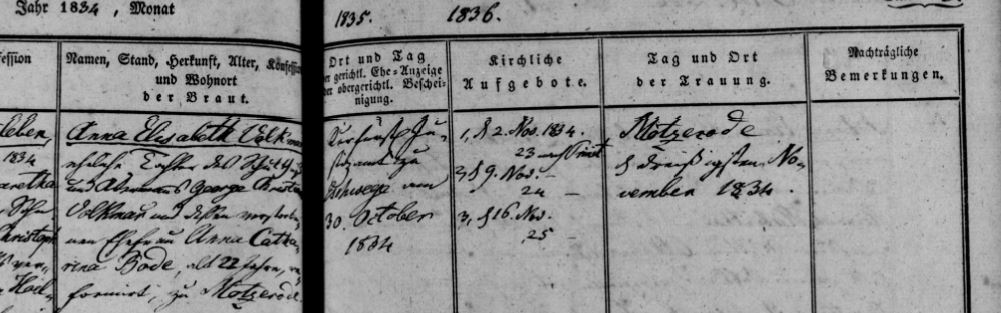 Jahr 1834, Monat
1835. 1836.
Namen, Stand, Herkunft, Alter, Konfession
und Wohnort
der Braut.
Ort und Tag
der gerichtl. Ehe-Anzeige
der obergerichtl. Beschei-
nigung.
Kirchliche
Aufgebote.
Tag und Ort
der Trauung.
Nachträgliche
Bemerkungen.
leben,
1834
Anna Elisabeth Volkmar
eheliche Tochter des
und George
Volkmar und dessen verstorbe-
nen Ehefrau Anna Catha-
rina Bode, alt 22 Jahre, re-
formirt, zu Motzerode
Kurfürstl. Ju-
stizamt zu
Eschwege am
30. October
1834
1, d 2. Nov. 1834.
23
2, d 9. Nov. —
24 —
3, d 16. Nov.
25 —
Motzerode
d dreißigsten No-
vember 1834.